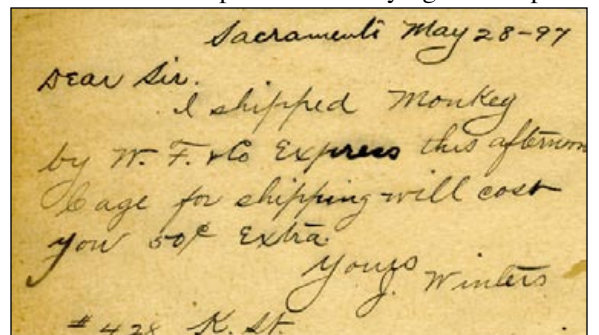 Sacramento May 28-97
Dear Sir.
I shipped Monkey
by W. F. & Co Express this afternoon
Cage for shipping will cost
you 50¢ Extra
Yours
J. Winters
# 428 K. St.